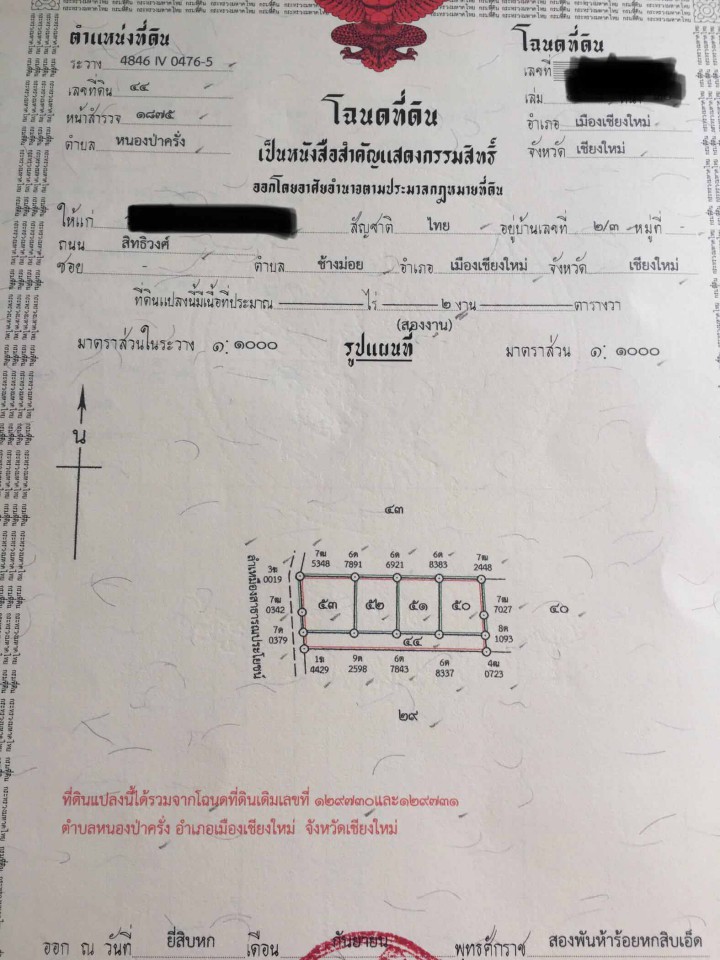 ตำแหน่งที่ดิน
ระวาง 4846 IV 0476-5
เลขที่ดิน ๔๔
หน้าสำรวจ ๑๘๗๕
ตำบล หนองป่าครั่ง
โฉนดที่ดิน
เลขที่
เล่ม
อำเภอ เมืองเชียงใหม่
จังหวัด เชียงใหม่
โฉนดที่ดิน
เป็นหนังสือสำคัญแสดงกรรมสิทธิ์
ออกโดยอาศัยอำนาจตามประมวลกฎหมายที่ดิน
ให้แก่ สัญชาติ ไทย อยู่บ้านเลขที่ ๒/๓ หมู่ที่ -
ถนน สิทธิวงศ์
ซอย - ตำบล ช้างม่อย อำเภอ เมืองเชียงใหม่ จังหวัด เชียงใหม่
ที่ดินแปลงนี้มีเนื้อที่ประมาณ ไร่ ๒ งาน ตารางวา
(สองงาน)
มาตราส่วนในระวาง ๑: ๑๐๐๐ รูปแผนที่ มาตราส่วน ๑: ๑๐๐๐
น
๔๓
7ฒ 5348
6ต 7891
6ต 6921
6ต 8383
7ฒ 2448
3ฃ 0019
7ฒ 0342
7ด 0379
ลำเหมืองสาธารณประโยชน์
๕๓ ๕๒ ๕๑ ๕๐
7ฒ 7027
๔๐
๔๔
8ต 1093
4429
9ต 2598
6ต 7843
6ต 8337
4ฒ 0723
๒๙
ที่ดินแปลงนี้ได้รวมจากโฉนดที่ดินเดิมเลขที่ ๑๒๙๗๓๐และ๑๒๙๗๓๑
ตำบลหนองป่าครั่ง อำเภอเมืองเชียงใหม่ จังหวัดเชียงใหม่
ออก ณ วันที่ ยี่สิบหก เดือน กันยายน พุทธศักราช สองพันห้าร้อยหกสิบเอ็ด